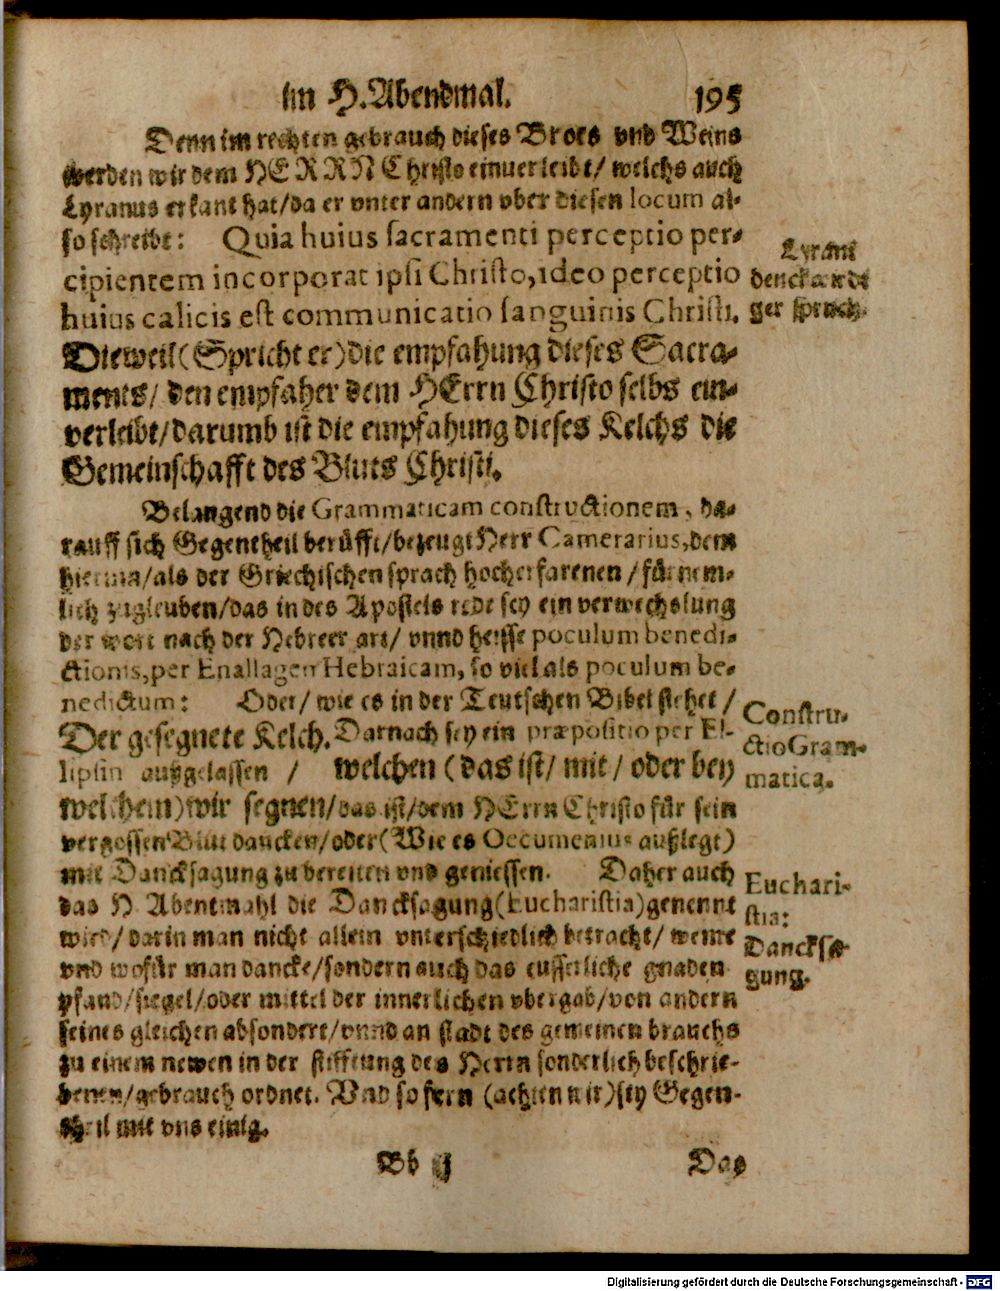 im H. Abendmal. 195
Denn im rechten gebrauch dieses Brots vnd Weins
werden wir dem HERRN Christo einuerleibt/ welchs auch
Lyranus erkant hat/ da er vnter andern vber diesen locum al-
so schreibt: Quia huius sacramenti perceptio per-
cipientem incorporat ipsi Christo, ideo perceptio
huius calicis est communicatio sanguinis Christi.
Dieweil (Spricht er) die empfahung dieses Sacra-
ments/ den empfaher dem HErrn Christo selbs ein-
verleibt/ darumb ist die empfahung dieses Kelchs die
Gemeinschafft des Bluts Christi.
Lyrani
denckwirdi
ger spruch.
Belangend die Grammaticam constructionem, da-
rauff sich Gegentheil berüfft/ bezeugt Herr Camerarius, dem
hierinn/ als der Griechischen sprach hocherfarenen/ fürnem-
lich zugleuben/ das in des Apostels rede sey ein verwechslung
der wort nach der Hebreer art/ vnnd heisse poculum benedi-
ctionis, per Enallagen Hebraicam, so viel als poculum be-
nedictum: Oder/ wie es in der Teutschen Bibel stehet/
Der gesegnete Kelch. Darnach sey ein præpositio per El-
lipsin ausgelassen/ welchen (das ist/ mit/ oder bey
welchem) wir segnen/ das ist/ dem HErrn Christo für sein
vergossen Blut dancken/ oder (Wie es Oecumenius außlegt)
mit Dancksagung zu bereiten vnd geniessen. Daher auch
das H. Abentmahl die Dancksagung (Eucharistia) genennt
wird/ darin man nicht allein vnterschiedlich betracht/ weme
vnd wofür man dancke/ sondern auch das eusserliche gnaden
pfand/ siegel/ oder mittel der innerlichen vbergab/ von andern
seines gleichen absondert/ vnnd an stadt des gemeinen brauchs
zu einem newen in der stifftung des Herrn sonderlich beschrie-
benen/ gebrauch ordnet. Vnd so fern (achten wir) sey Gegen-
theil mit vns einig.
Constru-
ctio Gram-
matica.
Euchari-
stia:
Dancksa-
gung.
Bb ij Das
Digitalisierung gefördert durch die Deutsche Forschungsgemeinschaft - DFG